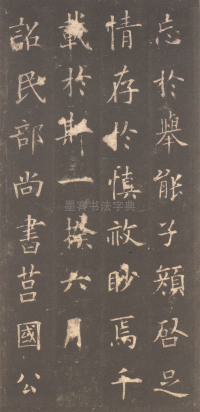 忘於舉能子顏啓足
情存於慎赦眇焉千
載於斯一揆六月
詔民部尚書莒國公
墨客书法字典